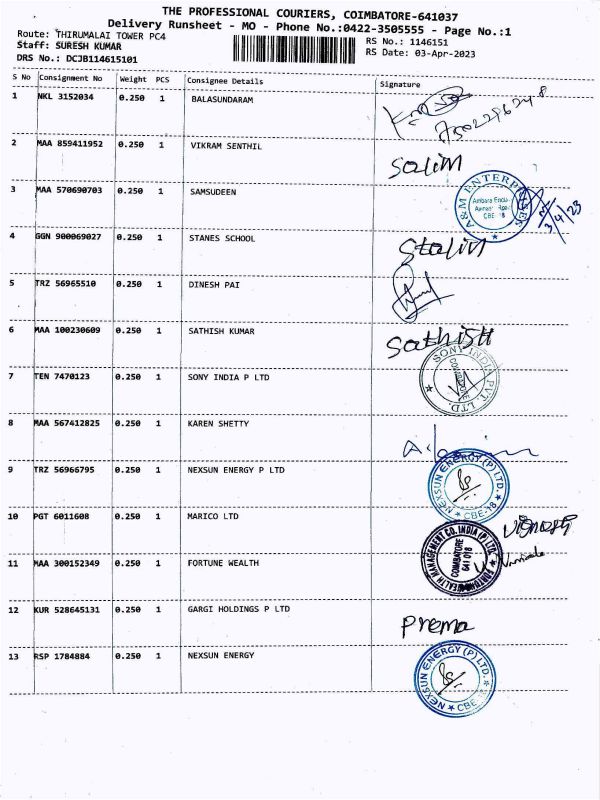 THE PROFESSIONAL COURIERS, COIMBATORE-641037
Delivery Runsheet - MO - Phone No.:0422-3505555 - Page No.:1
Route: THIRUMALAI TOWER PC4
Staff: SURESH KUMAR
DRS No.: DCJB114615101
RS No.: 1146151
RS Date: 03-Apr-2023
S No Consignment No Weight PCS Consignee Details Signature
1 NKL 3152034 0.250 1 BALASUNDARAM
2 MAA 859411952 0.250 1 VIKRAM SENTHIL Salim
3 MAA 570690703 0.250 1 SAMSUDEEN A&M ENTERPRISES CBE 18 3/4/23
4 GGN 900069027 0.250 1 STANES SCHOOL Stalin
5 TRZ 56965510 0.250 1 DINESH PAI
6 MAA 100230609 0.250 1 SATHISH KUMAR Sathish
7 TEN 7470123 0.250 1 SONY INDIA P LTD SONY INDIA PVT. LTD. COIMBATORE
8 MAA 567412825 0.250 1 KAREN SHETTY
9 TRZ 56966795 0.250 1 NEXSUN ENERGY P LTD NEXSUN ENERGY (P) LTD. CBE-18
10 PGT 6011608 0.250 1 MARICO LTD
11 MAA 300152349 0.250 1 FORTUNE WEALTH FORTUNE WEALTH MANAGEMENT CO. INDIA (P) LTD. COIMBATORE 641 018
12 KUR 528645131 0.250 1 GARGI HOLDINGS P LTD Prema
13 RSP 1784884 0.250 1 NEXSUN ENERGY NEXSUN ENERGY (P) LTD. CBE-18